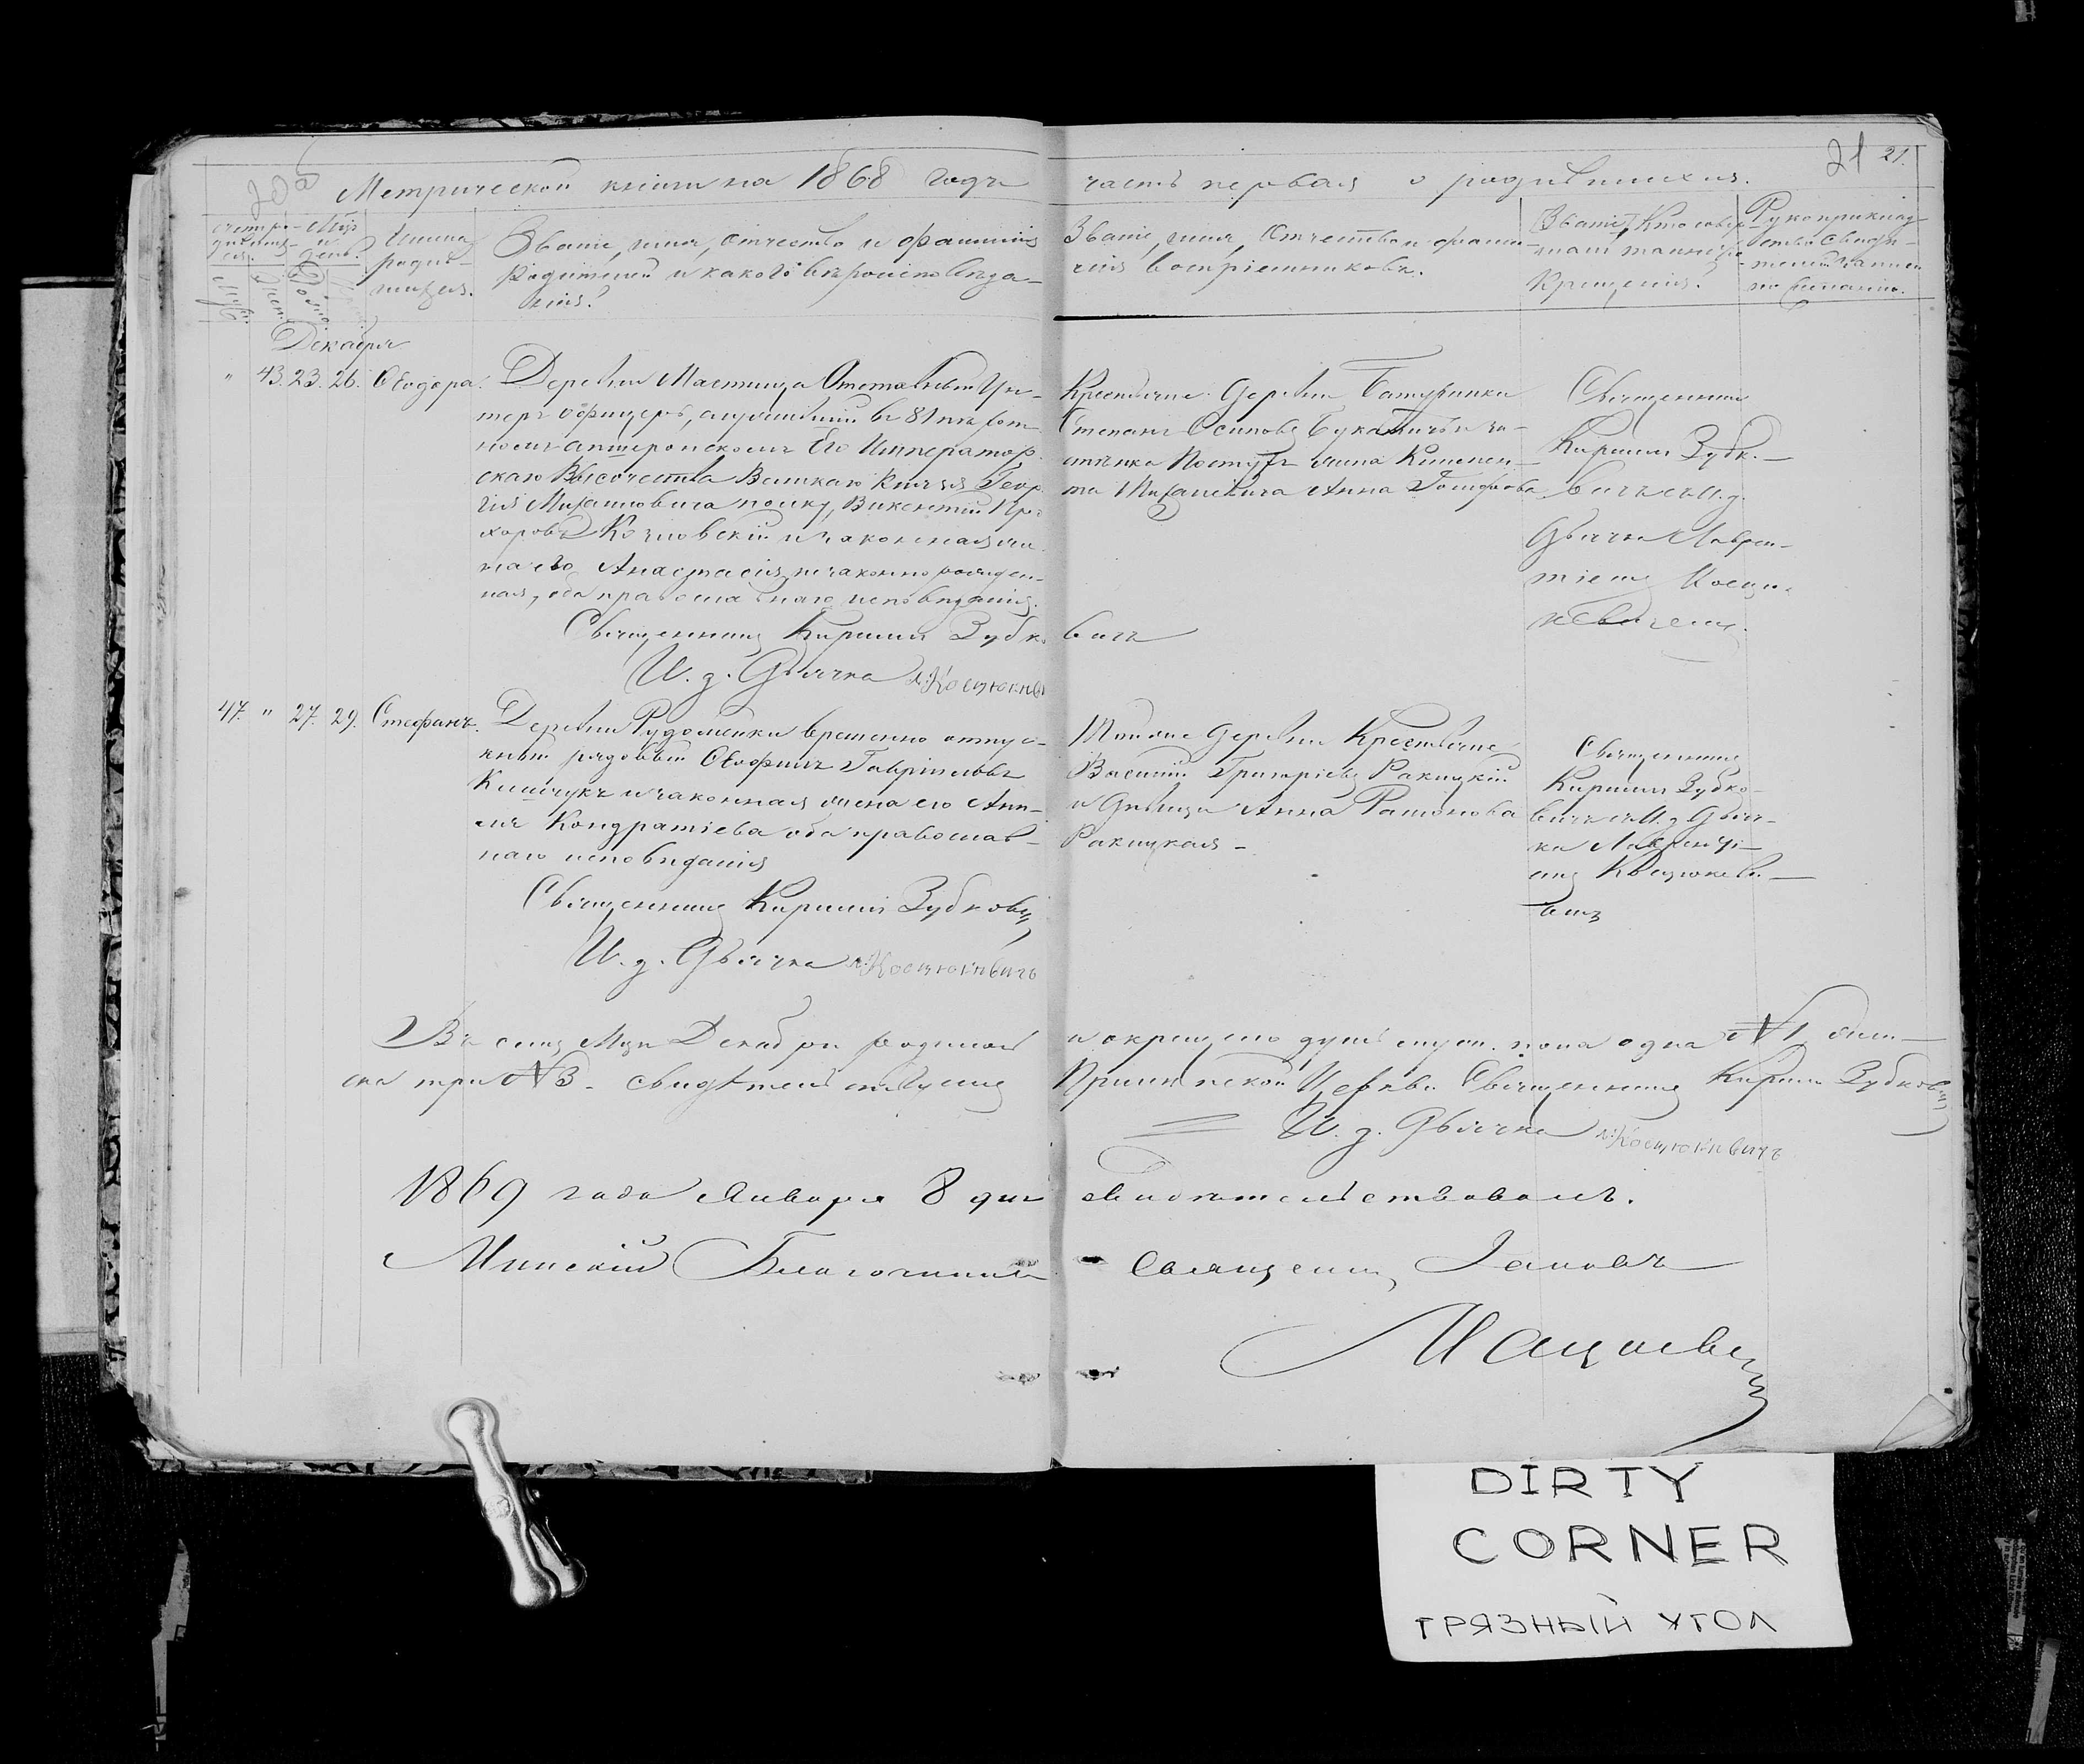 Метрической книги на 1868 годъ часть первая о родившихся.
21 21.
Имена родив-
шихся.
Званіе, имя, отчество и фамилія
родителей и какого вѣроисповѣда-
нія?
Званіе, имя, отчество и фами-
лія воспріемниковъ.
Званіе, Кто совер-
шалъ таинство
Крещенія?
Рукоприклад-
ство свидѣ-
телей записи
по желанію.
Декабря
" 43. 23. 26. Ѳеодора.
Деревни Мастища Отставный Ун-
теръ офицеръ, служившій въ 81 пѣхот-
номъ апшеронскомъ Его Император-
скаго Высочества Великаго Князя Геор-
гія Михаиловича полку, Викентій Про-
хоровъ Козловскій и законная же-
на его Анастасія, незаконно рожден-
ная, оба православнаго исповѣданія.
Священникъ Кириллъ Зубковичъ
И. д. Дьячка Л. Костюкевичъ
Крестьяне деревни Батуринки
Степанъ Осиповъ Букатичъ и за-
Анна
Священникъ
Кириллъ Зубко-
вичъ съ И. д.
Дьячка Лаврен-
тіемъ Костю-
кевичемъ.
47. " 27. 29. Стефанъ.
Деревни Рудоменки временно отпус-
кный рядовый Ѳеофилъ Гавріиловъ
Климчукъ и законная жена его Анн-
Кондратіева оба православ-
наго исповѣданія
Священникъ Кириллъ Зубковичъ
И. д. Дьячка Л. Костюкевичъ
Тойже деревни Крестьяне
Василій Григоріевъ Ракицкій
и дѣвица Анна
Ракицкая -
Священникъ
Кириллъ Зубко-
вичъ съ И. д. Дьяч-
ка Лаврентi-
емъ Костюкеви-
чемъ
Въ семъ Мцѣ Декабрѣ родилось и окрещено душъ муж. пола одна №1, жен-
ска три №3 - свидѣтельствуемъ Церкви Священникъ Кириллъ Зубковичъ
И. д. Дьячка Л. Костюкевичъ
1869 года Января 8 дня свидѣтельствовалъ.
Минскій Благочинный Священникъ
DIRTY
CORNER
ГРЯЗНЫЙ УГОЛ